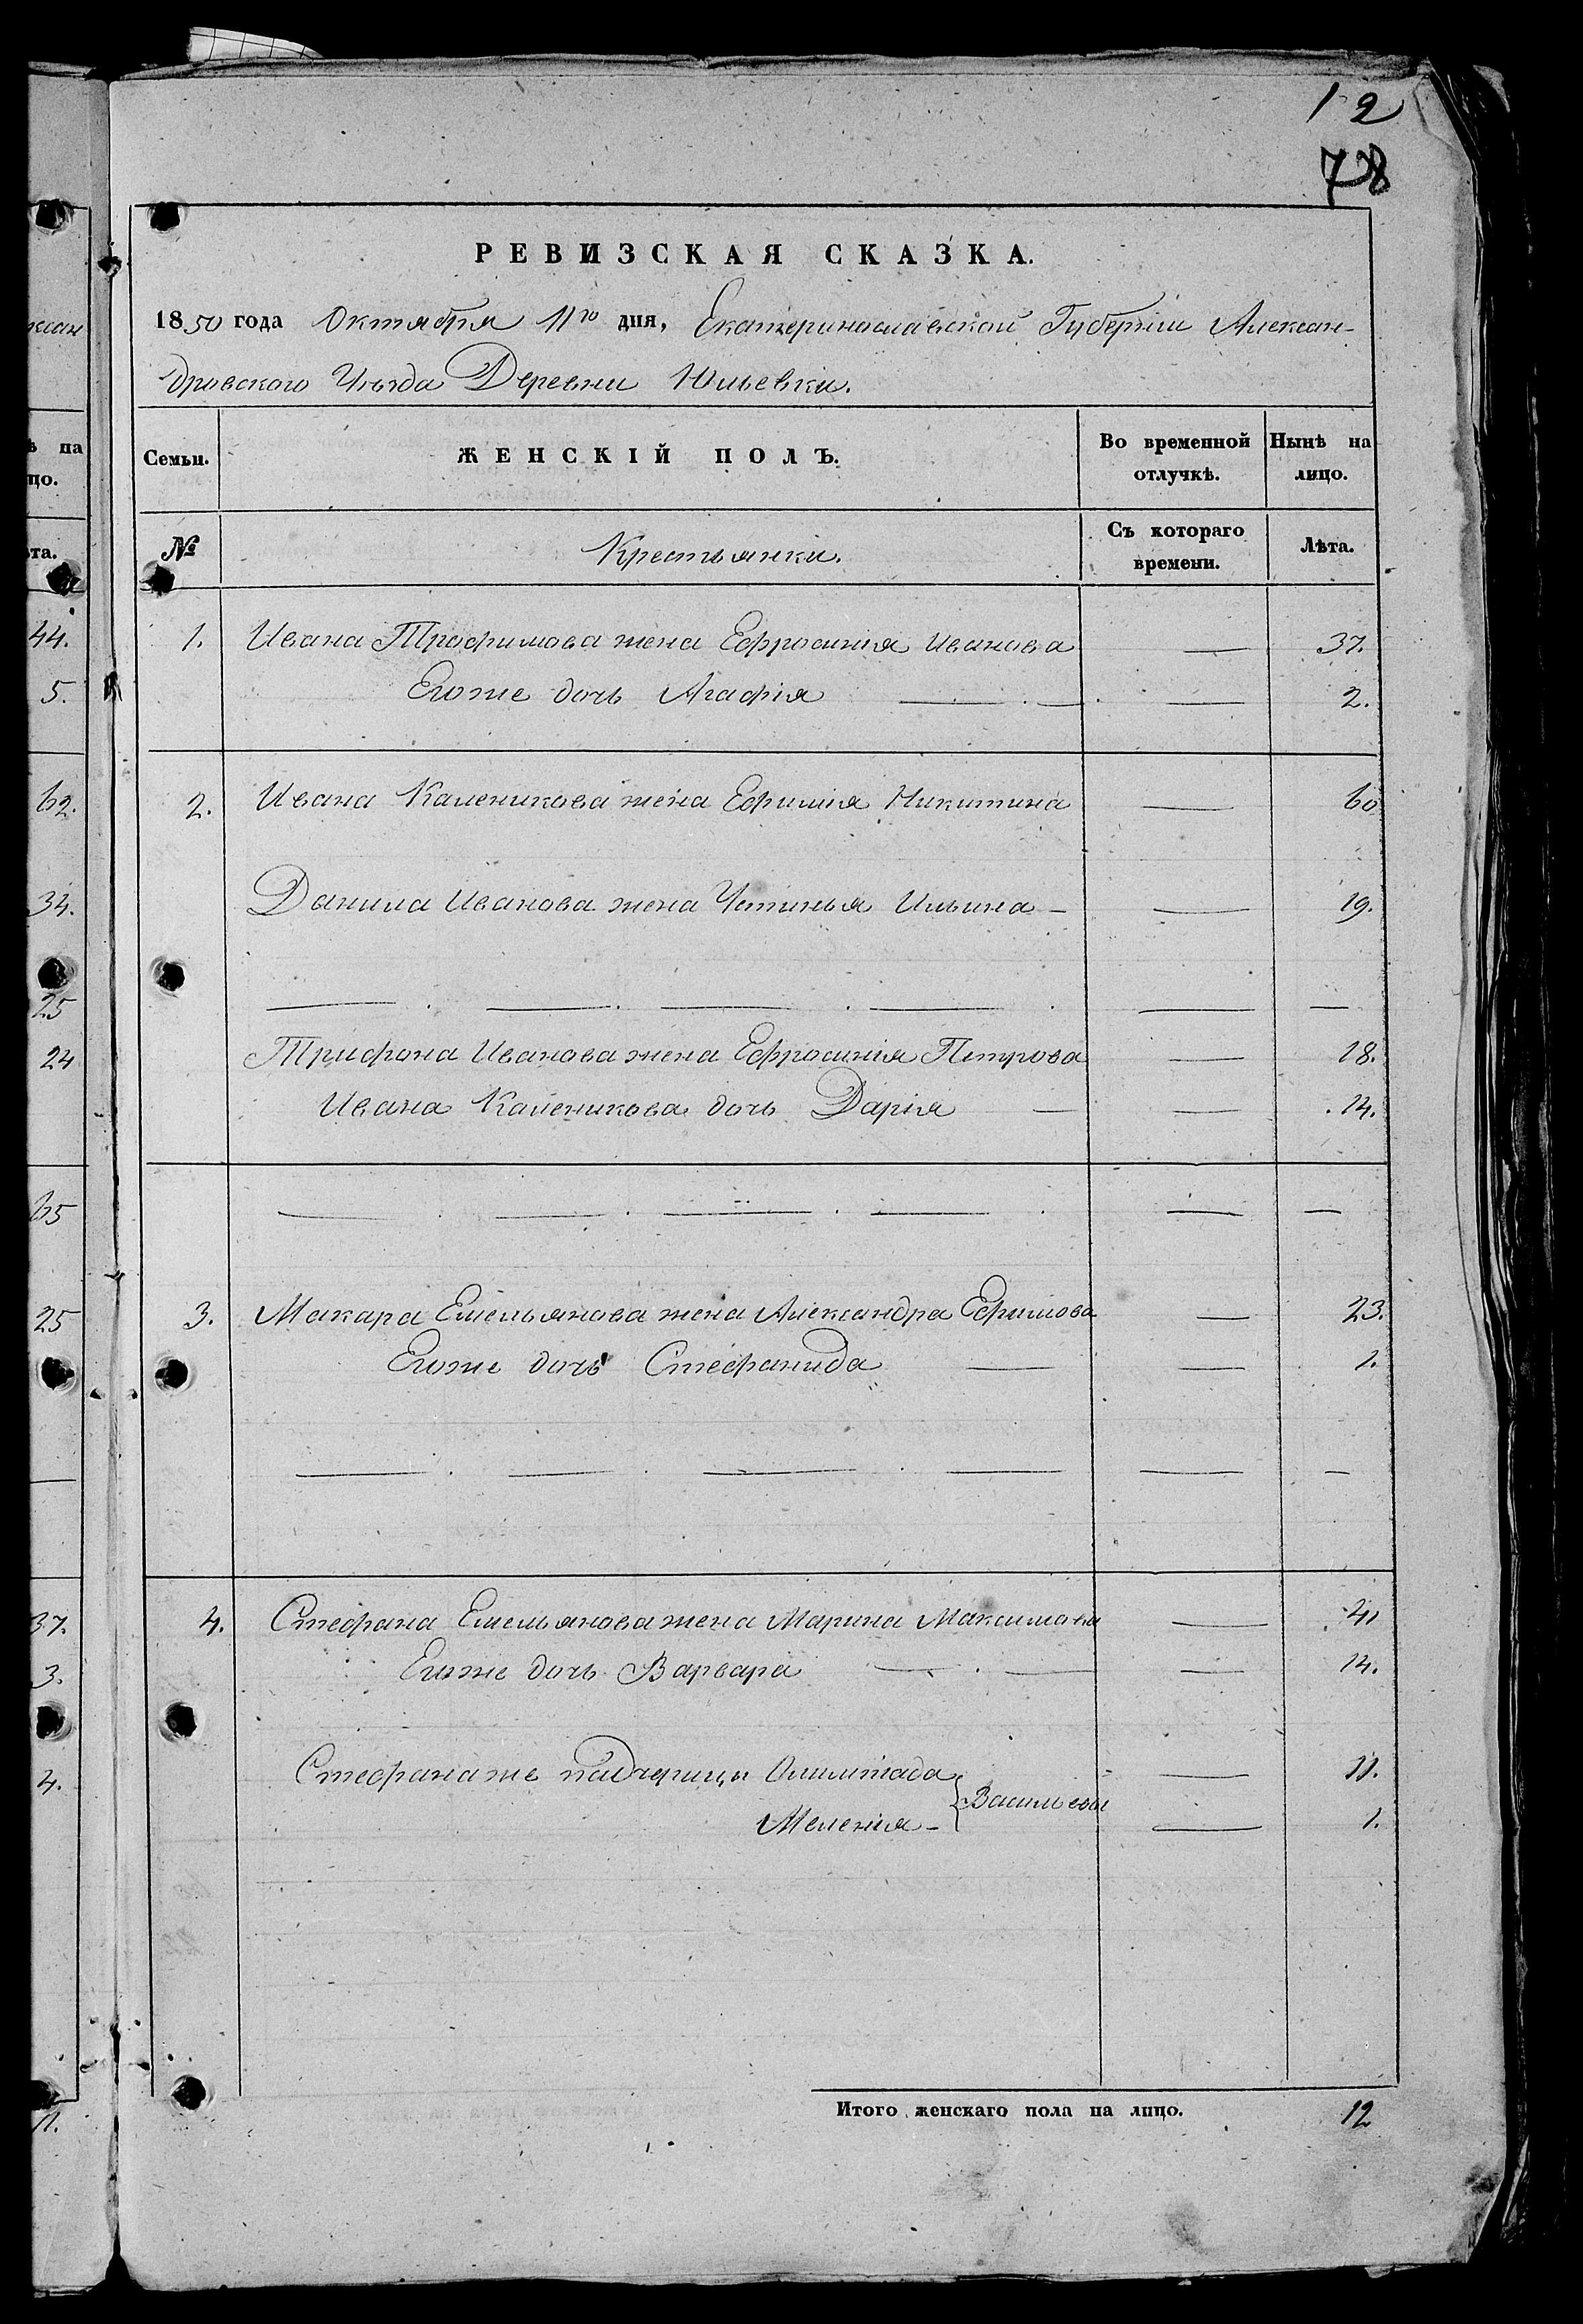 12
78
РЕВИЗСКАЯ СКАЗКА.
1850 года Октября 11го дня, Екатеринославской Губерніи Алексан-
дровского Уѣзда Деревни Юльевки.
Семьи. ЖЕНСКІЙ ПОЛЪ. Во временной отлучкѣ. Нынѣ на лицо.
№ Крестьянки. Съ котораго времени. Лѣта.
1. Ивана Трофимова жена Ефросинія Иванова — 37.
Егоже дочь Агафія — — — 2.
2. Ивана Каленикова жена Ефимія Никитина — 60
Данила Иванова жена Устинья Ильина — — 19.
— . — . — . — . — —
Трифона Иванова жена Ефросинія Петрова — 18.
Ивана Каленикова дочь Дарія — — 14.
— . — . — . — . — —
3. Макара Емельянова жена Александра Ефимова — 23.
Егоже дочь Стефанида — — 1.
— . — . — . — — —
4. Стефана Емельянова жена Марина Максимова — 41
Егоже дочь Варвара — . — — 14.
Стефана же падчерицы Олимпіада } Васильевы — 11.
Меленія — — 1.
Итого женскаго пола на лицо. 12
ксан
ѣ на
цо.
ѣта.
44.
5.
62.
34.
25
24
65
25
37.
3.
4.
11.